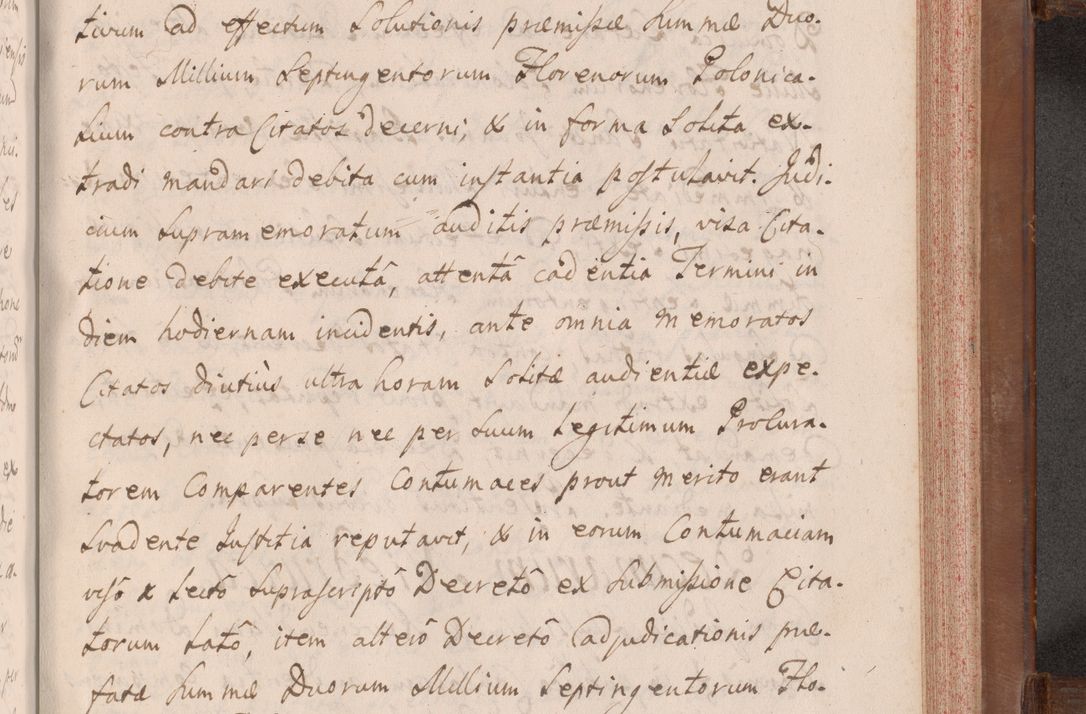 tivum ad effectum Solutionis præmissæ Summæ Duo-
rum Millium Septingentorum Florenorum Polonica-
lium contra Citatos decerni, & in forma Solita ex-
tradi mandari debita cum instantia postulavit. Judi-
cium Supramemoratum auditis præmissis, visa Cita-
tione debite executâ, attentâ cadentia Termini in
diem hodiernam incidentis, ante omnia Memoratos
Citatos diutiùs ultra horam Solitæ audientiæ expe-
ctatos, nec per se nec per Suum Legitimum Procura-
torem Comparentes Contumaces prout Merito erant
Svadente Justitia reputavit, & in eorum Contumaciam
visô & Lectô Suprascriptô Decretô ex Submissione Cita-
torum Latô, item alterô Decretô adjudicationis præ-
fatæ Summæ Duorum Millium Septingentorum Flo-